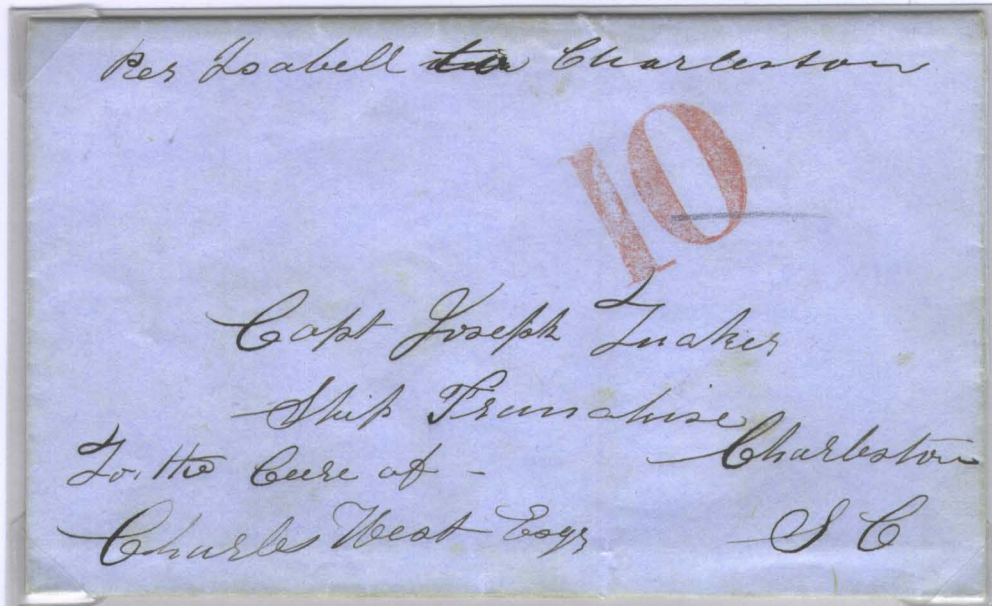 Per Isabell to Charleston
10
Capt Joseph Tucker
Ship Franchise
Charleston
To the Care of -
Charles West Esqr
S C